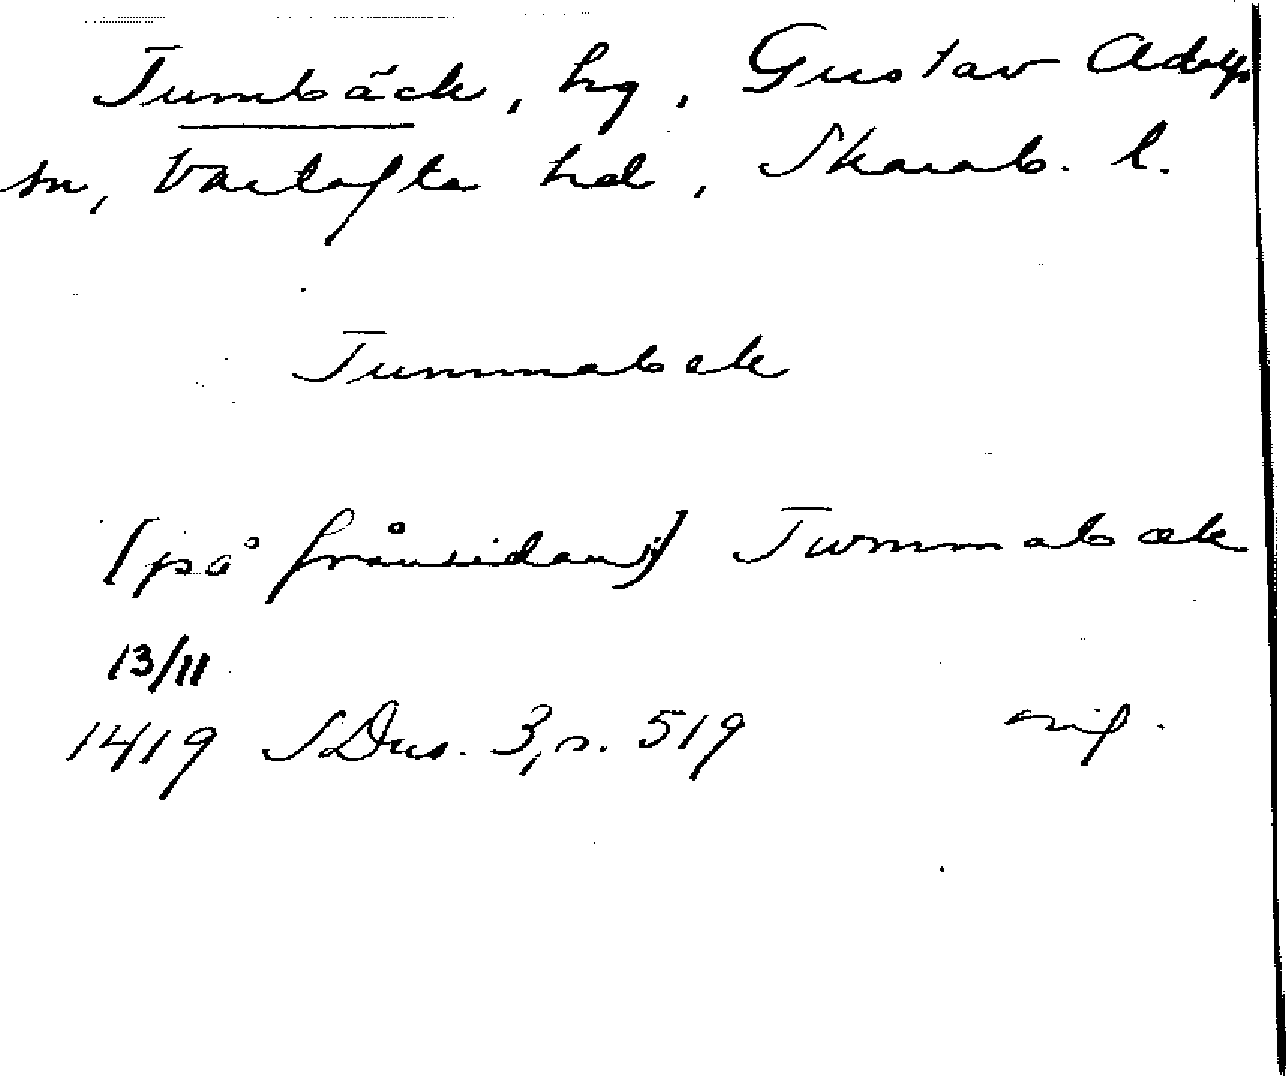 Tumbäck, hg, Gustav Adolfs
sn, Vartofta hd, Skarab. l.
Tummabek
(på frånsidan) Twmmabæk
13/11
1419 SDns. 3, s. 519 orig.